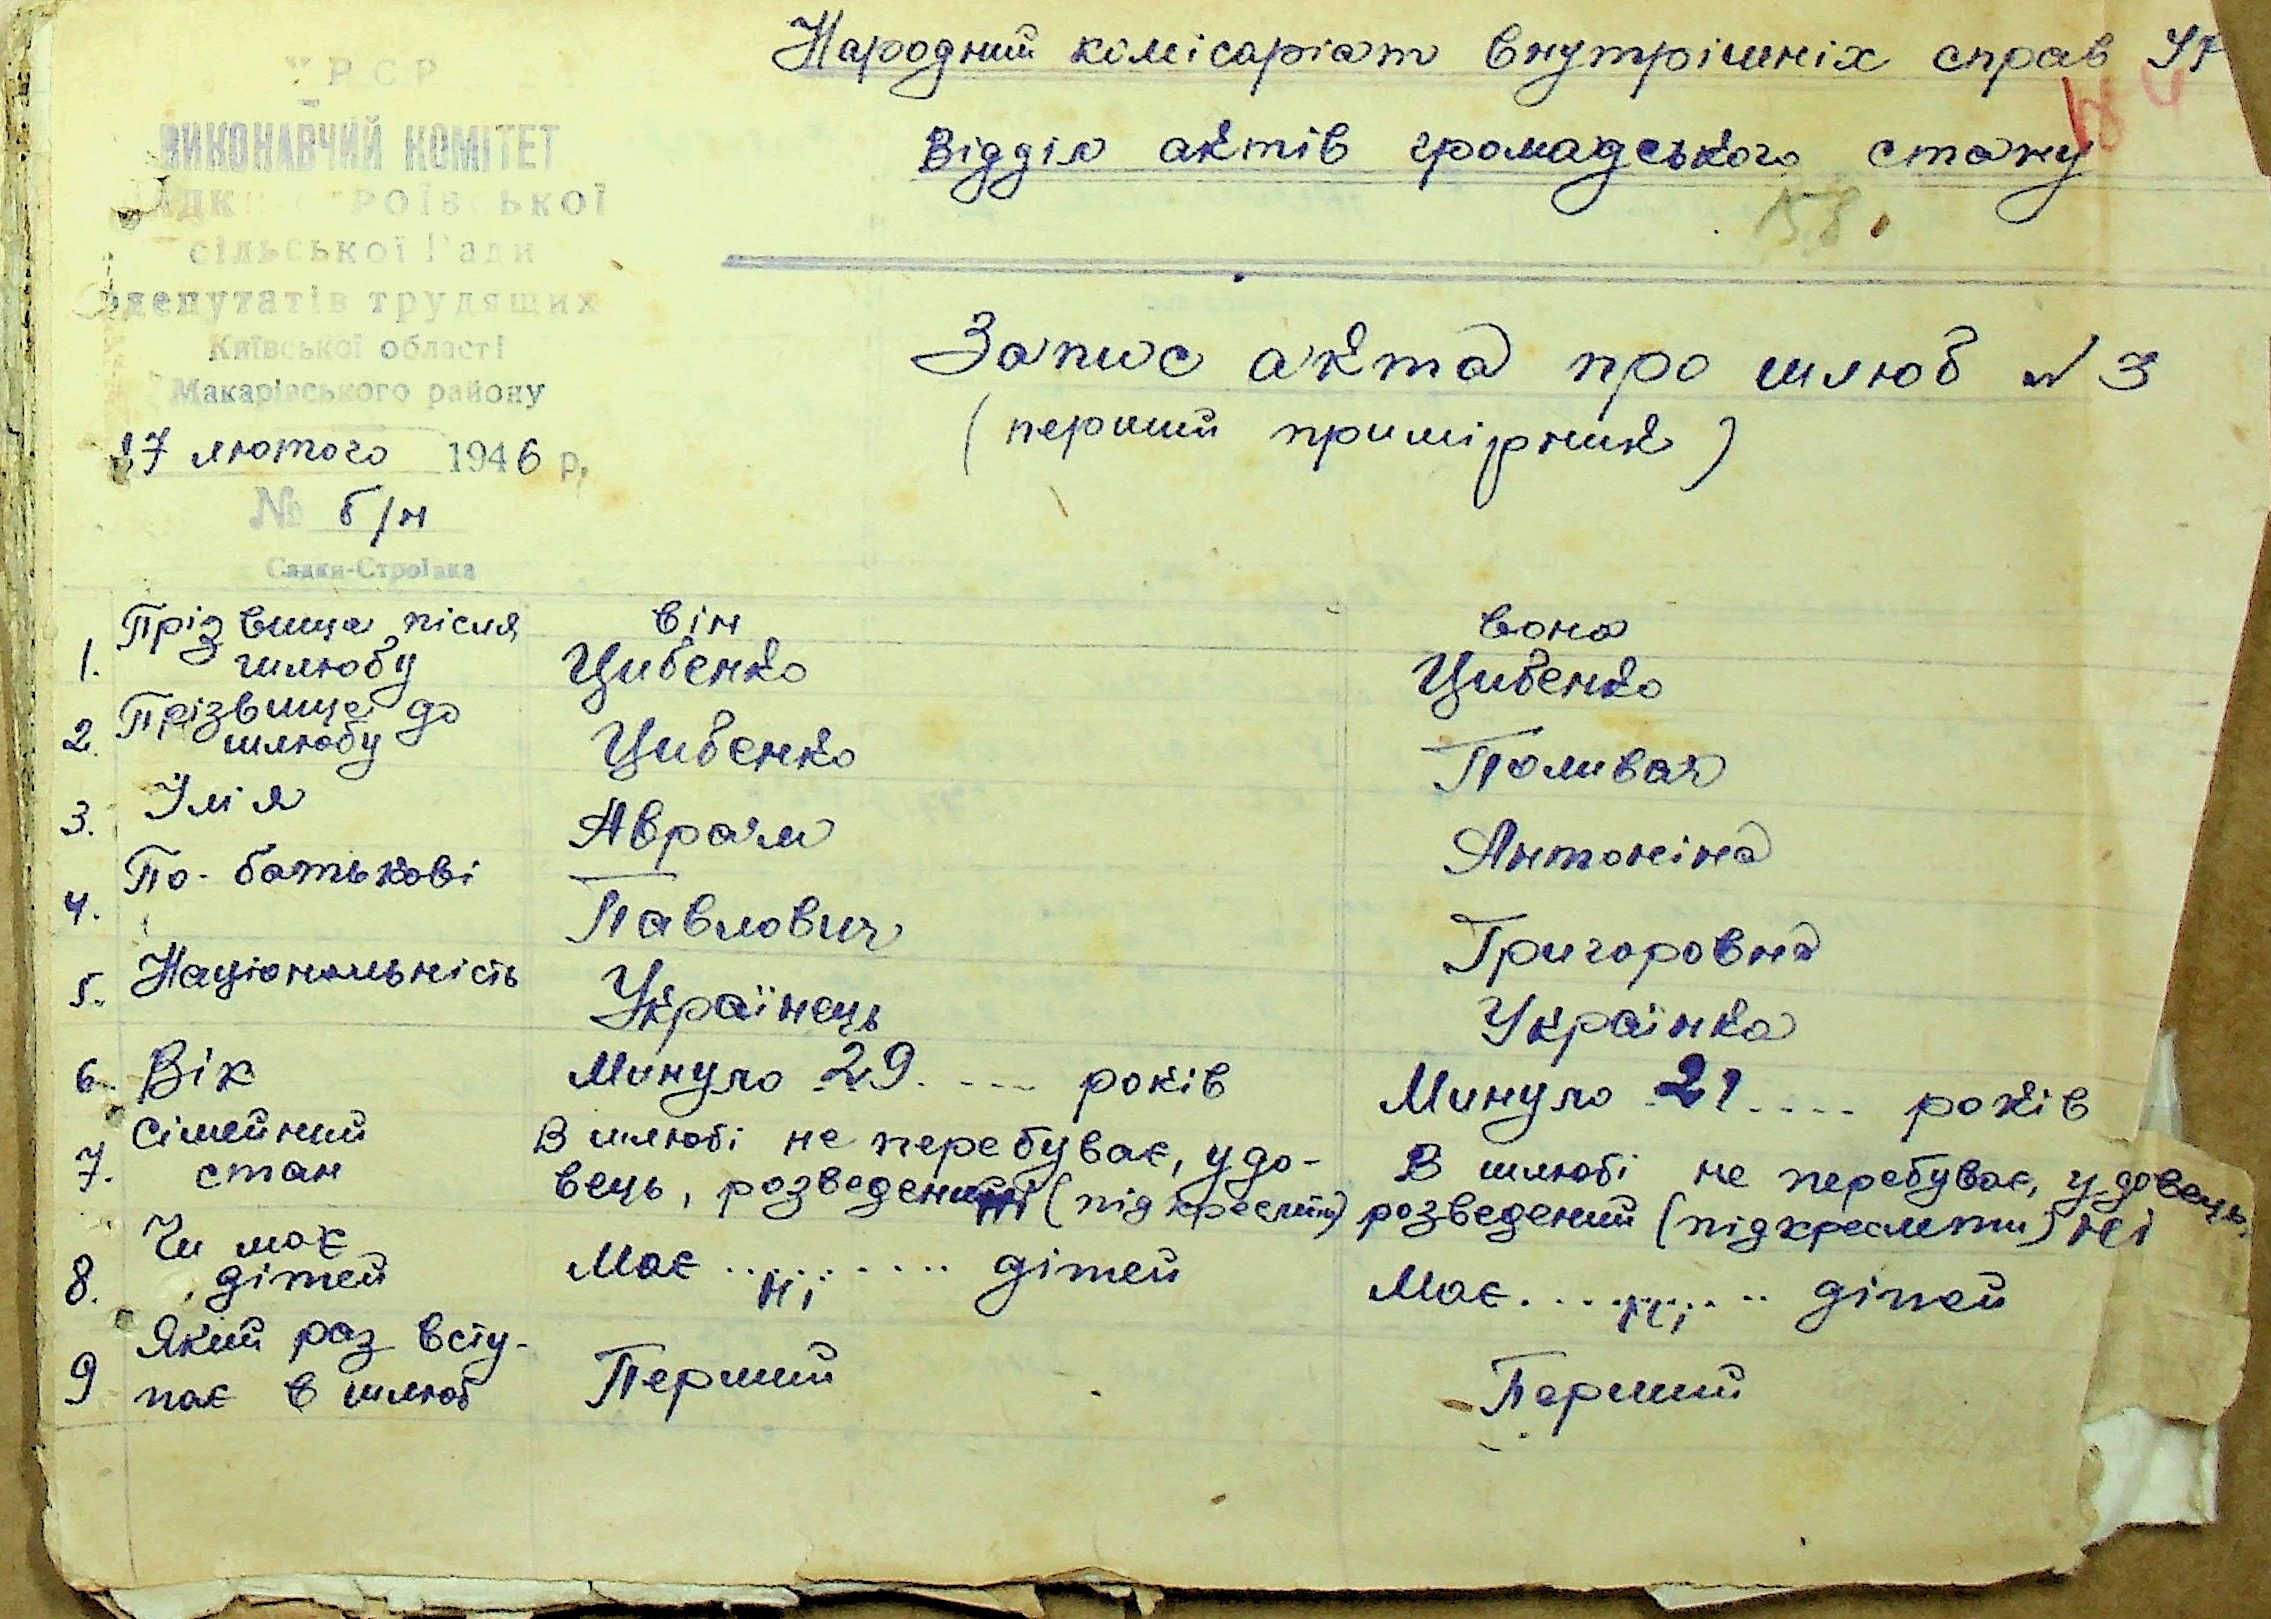 Народний комісаріат внутрішніх справ УР
Відділ актів громадського стану
158.
УРСР
ВИКОНАВЧИЙ КОМІТЕТ
сільської Ради
депутатів трудящих
Київської області
Макарівського району
17 лютого 1946 р.
№ б/н
Садки-Строївка
Запис акта про шлюб № 3
(перший примірник)
він вона
1. Прізвища після шлюбу Цибенко Цибенко
2. Прізвище до шлюбу Цибенко Поливач
3. Імія Аврам Антоніна
4. По-батькові Павлович Григоровна
5. Національність Українець Українка
6. Вік Минуло 29 .... років Минуло 21 .... років
7. Сімейний стан В шлюбі не перебуває, удо-
вець, розведений ні (підкреслити) В шлюбі не перебуває, удовець,
розведений (підкреслити) ні
8. Чи має дітей Має ... ні ... дітей Має ... ні ... дітей
9 Який раз всту-
пає в шлюб Перший Перший